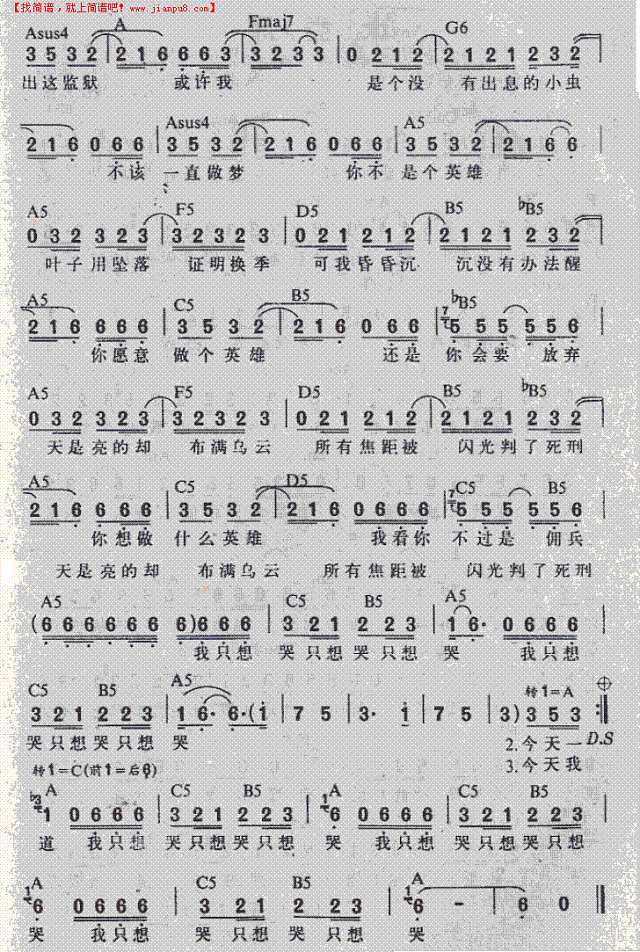 【找简谱，就上简谱吧！】 www.jianpu8.com
Asus4 A Fmaj7 G6
3 5 3 2 | 2 1 6 6 6 3 | 3 2 3 3 | 0 2 1 2 | 2 1 2 1 2 3 2 |
出这监狱 或许我 是个没 有出息的小虫
Asus4 A5
2 1 6 0 6 6 | 3 5 3 2 | 2 1 6 0 6 6 | 3 5 3 2 | 2 1 6 6 |
不该 一直做梦 你不 是个英雄
A5 F5 D5 B5 ♭B5
0 3 2 3 2 3 | 3 2 3 2 3 | 0 2 1 2 1 2 | 2 1 2 1 2 3 2 |
叶子用坠落 证明换季 可我昏昏沉 沉没有办法醒
A5 C5 B5 ♭B5
2 1 6 6 6 6 | 3 5 3 2 | 2 1 6 0 6 6 | 5 5 5 5 5 6 |
你愿意 做个英雄 还是 你会要 放弃
A5 F5 D5 B5 ♭B5
0 3 2 3 2 3 | 3 2 3 2 3 | 0 2 1 2 1 2 | 2 1 2 1 2 3 2 |
天是亮的却 布满乌云 所有焦距被 闪光判了死刑
A5 C5 D5 C5 B5
2 1 6 6 6 6 | 3 5 3 2 | 2 1 6 0 6 6 6 | 5 5 5 5 5 6 |
你想做 什么英雄 我看你 不过是 佣兵
天是亮的却 布满乌云 所有焦距被 闪光判了死刑
A5 C5 B5 A5
(6 6 6 6 6 6 6 6) 6 6 6 | 3 2 1 2 2 3 | 1 6· 0 6 6 6 |
我只想 哭只想哭只想 哭 我只想
C5 B5 A5 转1=A
3 2 1 2 2 3 | 1 6· 6· (i | 7 5 | 3· i | 7 5 | 3) 3 5 3 :‖
哭只想哭只想 哭 2.今天一 D.S
转1=C(前1=后6) 3.今天我
A C5 B5 A C5 B5
♭3 1 0 6 6 6 | 3 2 1 2 2 3 | 1 6 0 6 6 6 | 3 2 1 2 2 3 |
道 我只想 哭只想哭只想 哭 我只想 哭只想哭只想
A C5 B5 A
1 6 0 6 6 6 | 3 2 1 2 2 3 | 1 6 - | 6 0 ‖
哭 我只想 哭只想哭只想 哭